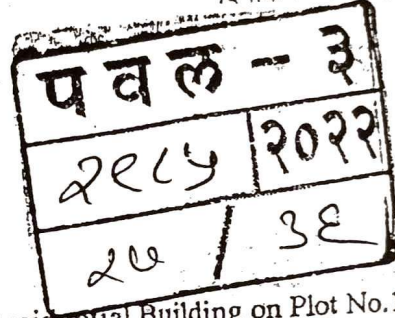 पवल - ३
२९८५ २०२२
२७ / ३६
Building on Plot No.